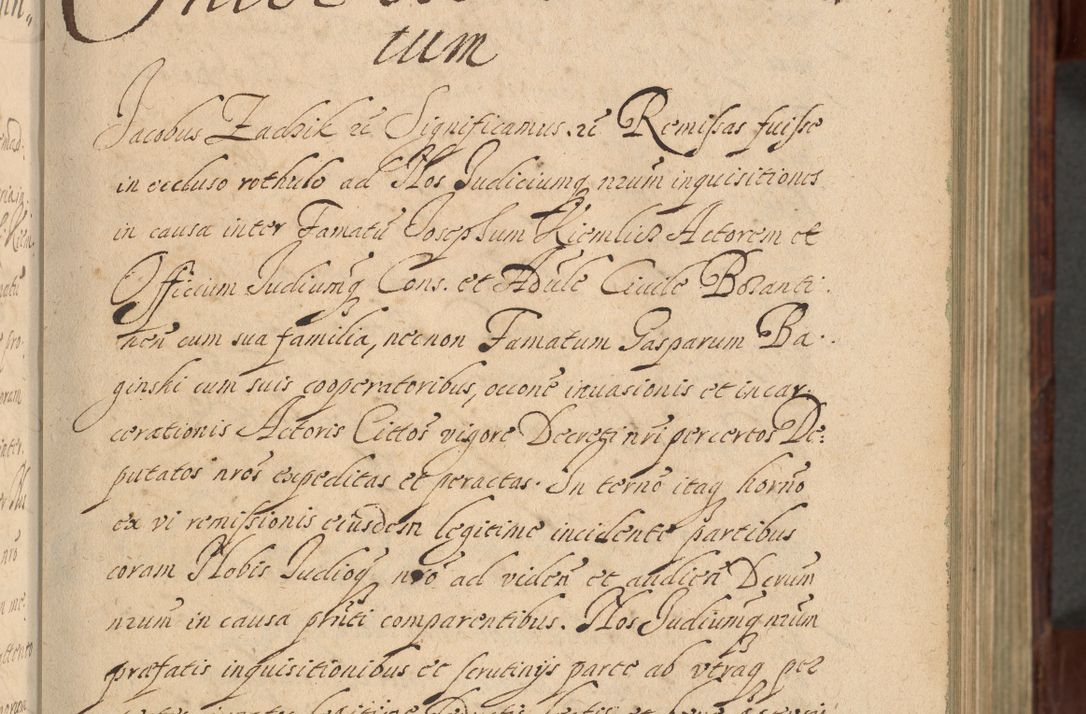 tum
Jacobus Zadzik etc Significamus. etc Remissas fuisse
in occluso rothulo ad Nos Judiciumq nrum inquisitiones
in causa inter Famatū Josephum Kiemlicz Actorem et
Officium Judiumq̄ Cons. et Aduōle Ciuile Bozanti
nen̄ cum sua familia, necnon Famatum Gasparum Ba-
ginski cum suis cooperatoribus, occōne inuasionis et incar
cerationis Actoris Cittōs vigore Decreti nrī per certos De:
putatos nrōs expeditas et peractas. In ternō itaq hornō
ex vi remissionis eiusdem legitime incidente partibus
coram Nobis Judioq nrō ad viden̄ et audien̄ Derum
nrum in causa prn̄ti comparentibus. Nos Judiumq nrum
præfatis inquisitionibus et scrutinijs parte ab vtraq per